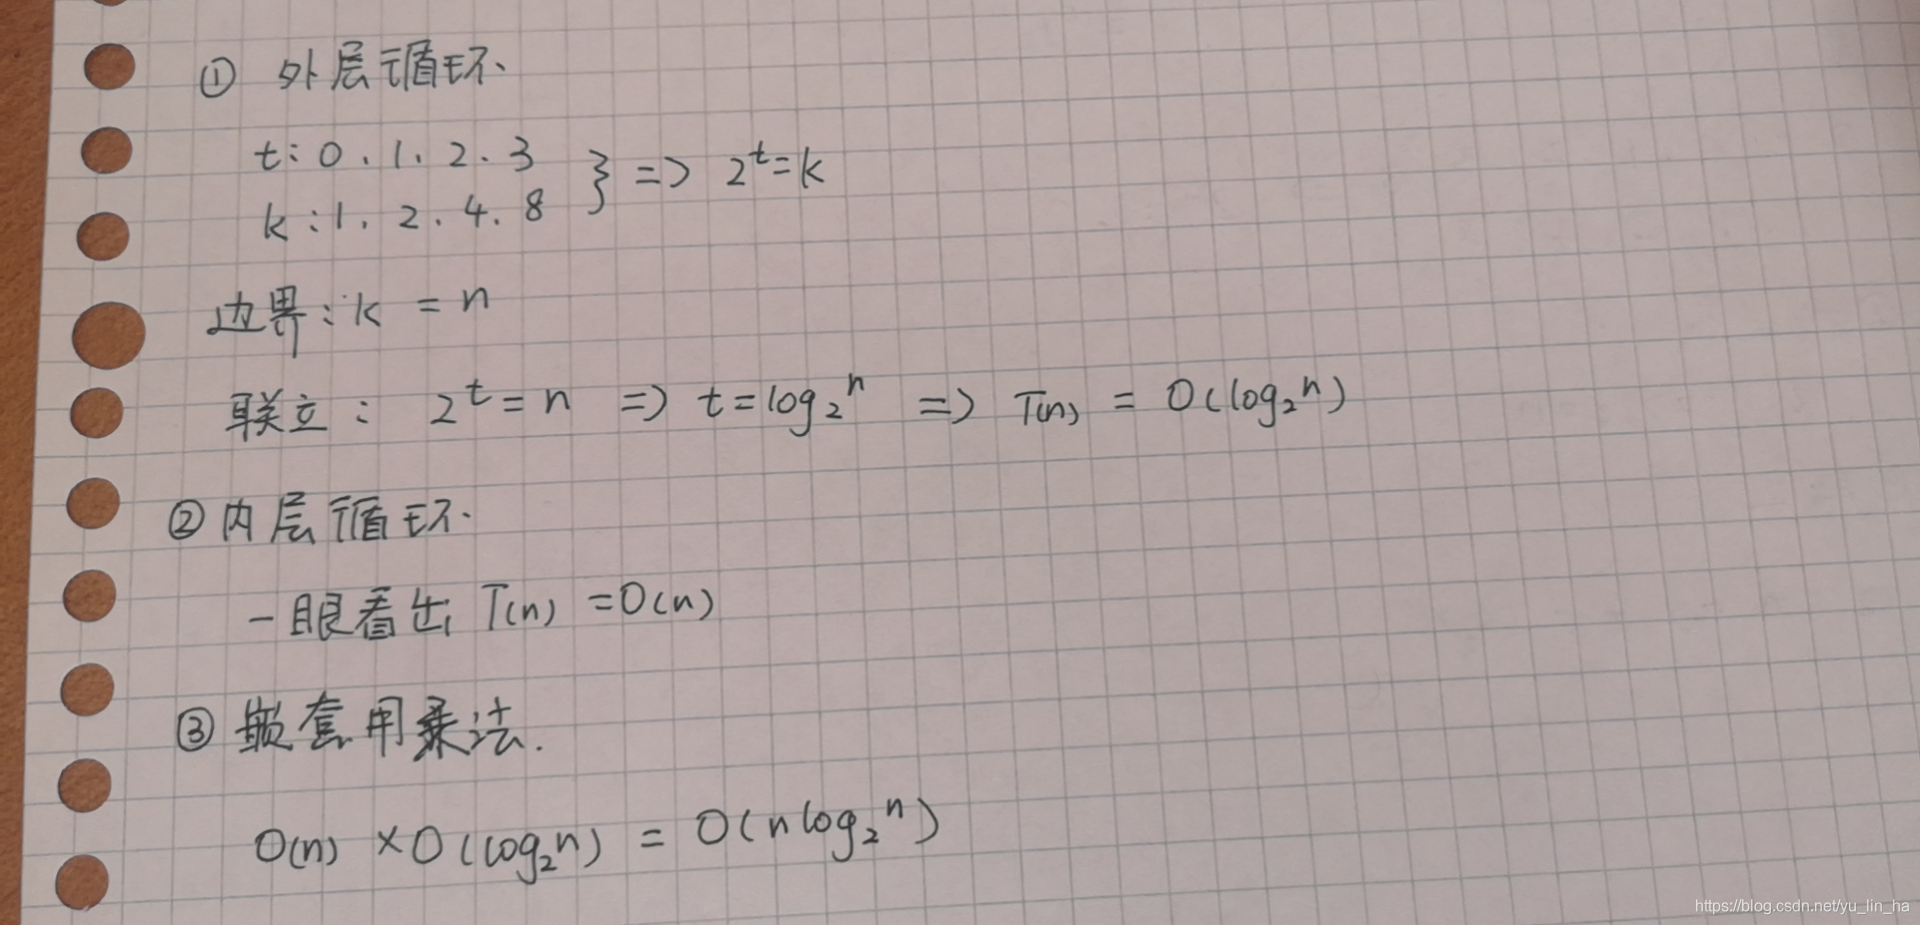 ① 外层循环.
t: 0. 1. 2. 3
k: 1. 2. 4. 8 } => 2^t = k
边界: k = n
联立: 2^t = n => t = log₂n => T(n) = O(log₂n)
② 内层循环.
一眼看出 T(n) = O(n)
③ 嵌套用乘法.
O(n) × O(log₂n) = O(nlog₂n)
https://blog.csdn.net/yu_lin_ha